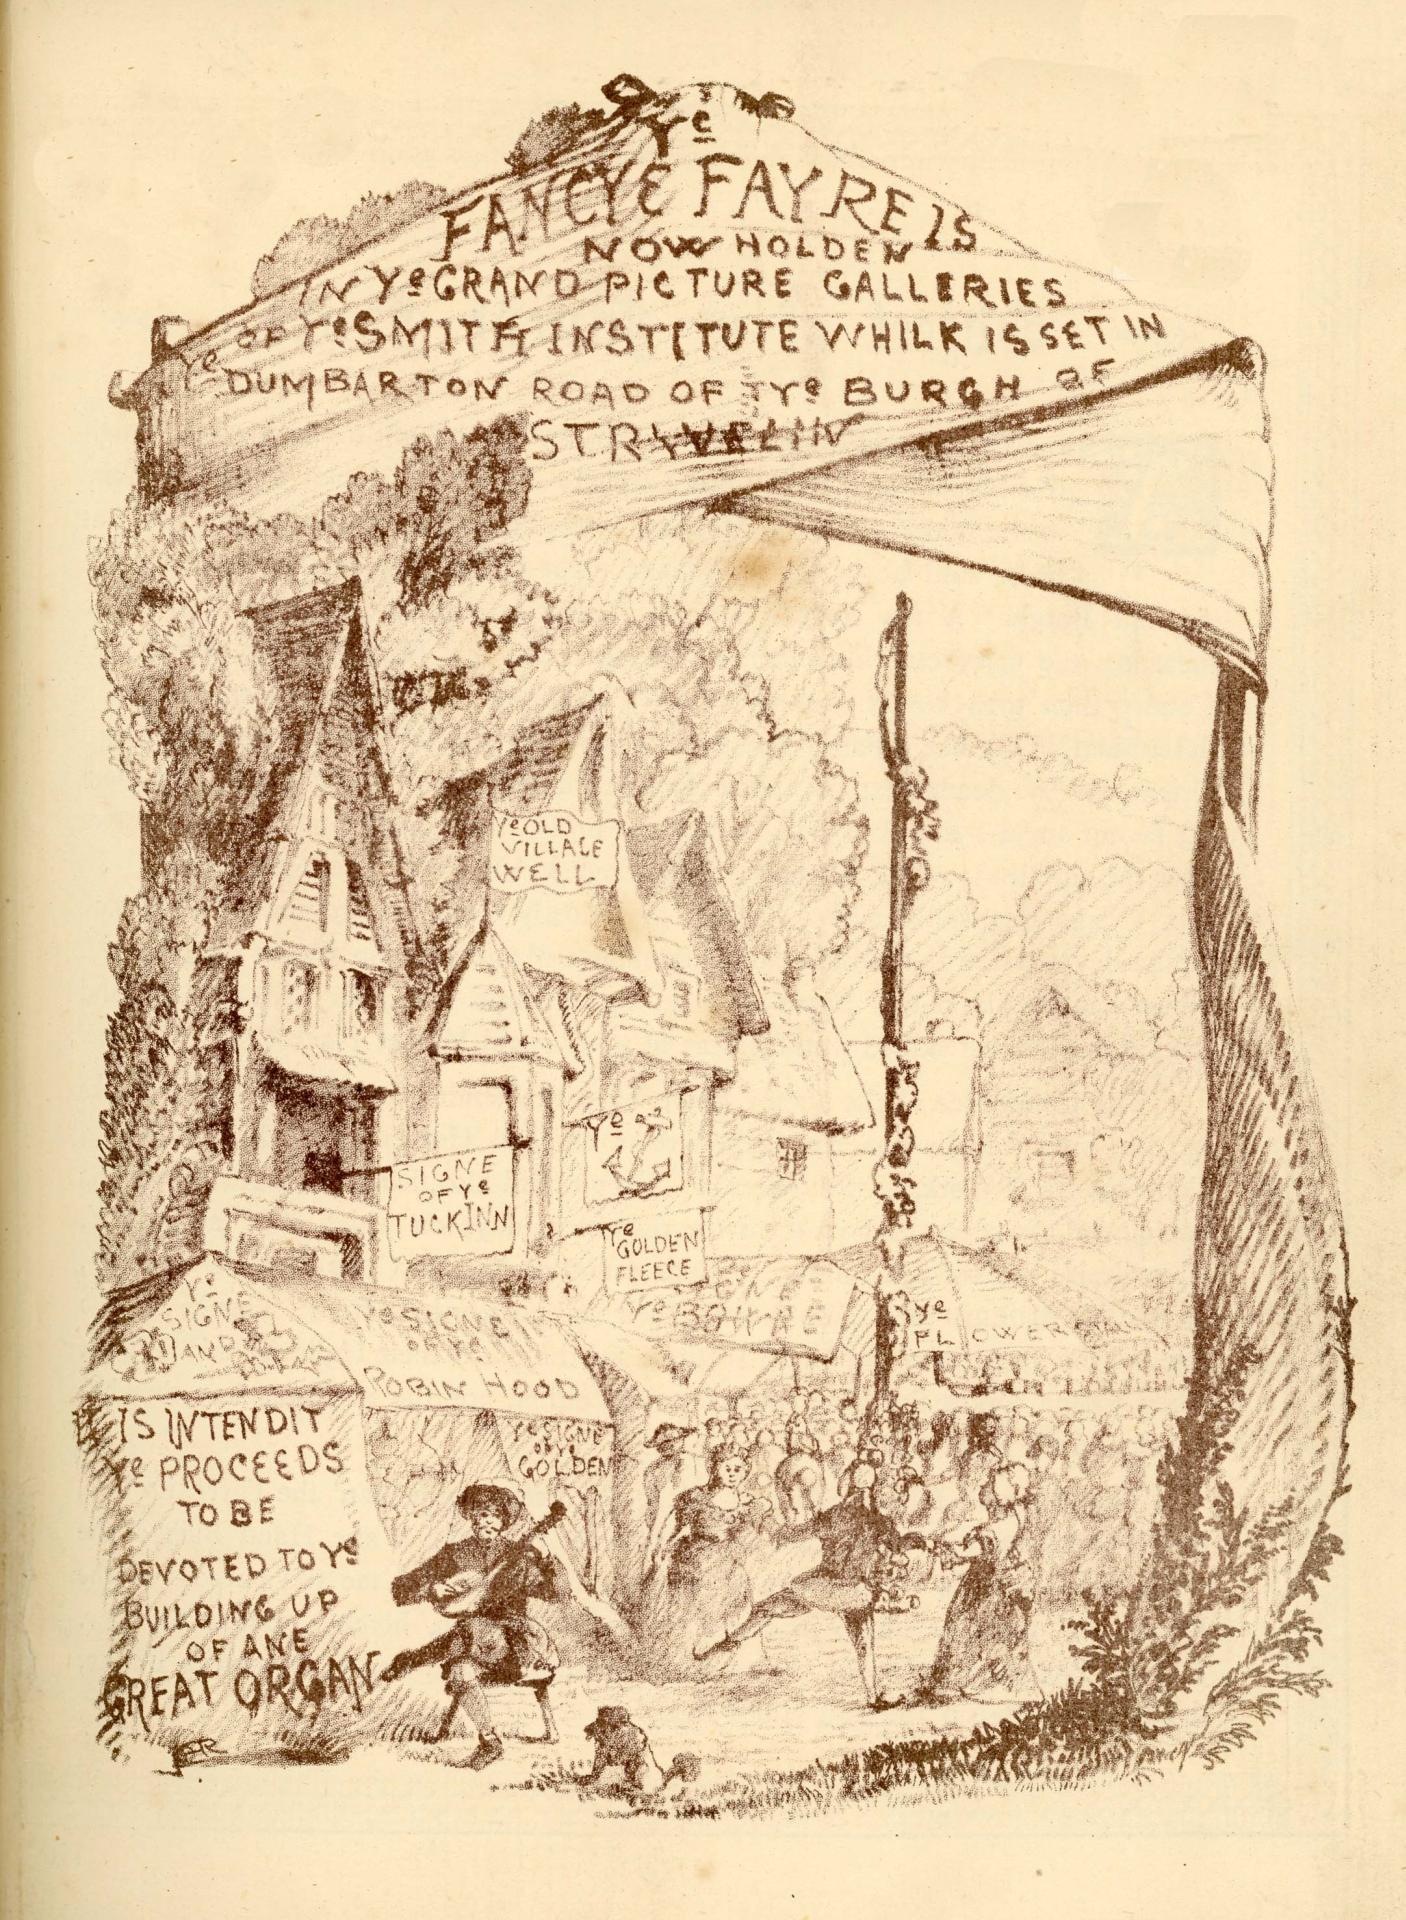 Ye
FANCYE FAYRE IS
NOW HOLDEN
IN Ye GRAND PICTURE GALLERIES
OF Ye SMITH INSTITUTE WHILK IS SET IN
Ye DUMBARTON ROAD OF Ye BURGH OF
STRYVELIN
Ye OLD
VILLAGE
WELL
SIGNE
OF Ye
TUCK INN
Ye
Ye
GOLDEN
FLEECE
Ye
SIGNE
AND
Ye SIGNE
OF Ye
ROBIN HOOD
Ye
Ye
FLOWER STALL
Ye SIGNE
OF Ye
GOLDEN
IS INTENDIT
Ye PROCEEDS
TO BE
DEVOTED TO Ye
BUILDING UP
OF ANE
GREAT ORGAN